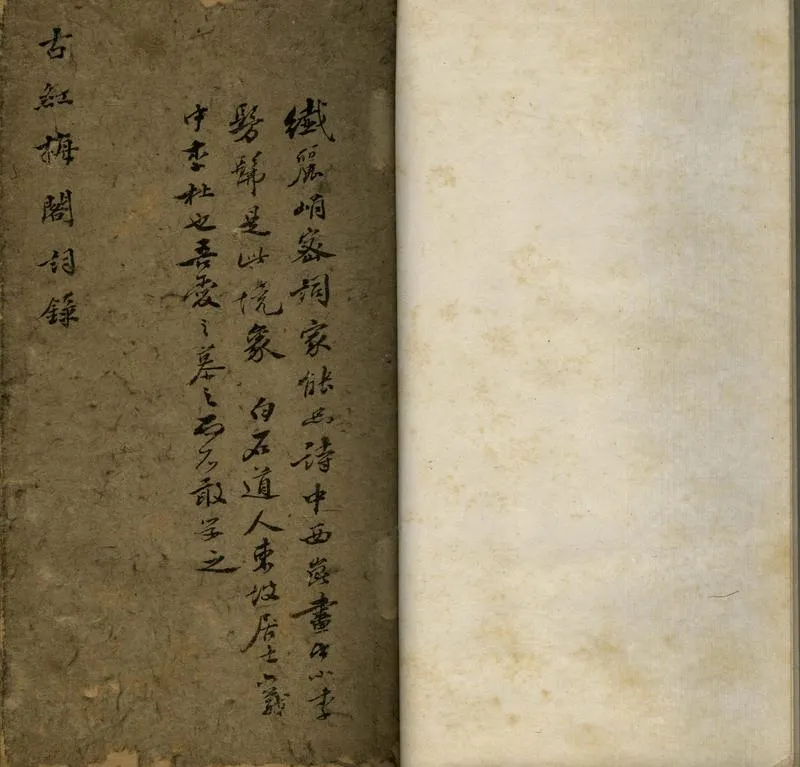 纖麗峭密詞家能品詩中西崑畫中小李
髣髴是此境象 白石道人東坡居士六義
中李杜也吾愛之慕之而不敢学之
古紅梅閣詞錄